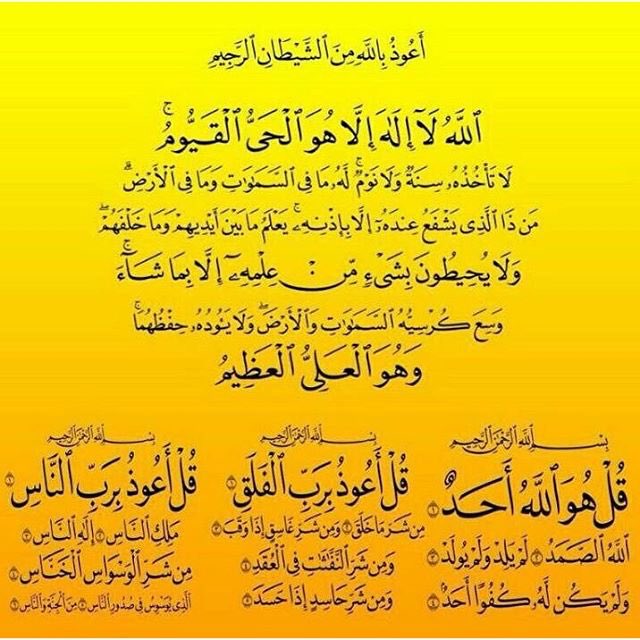 أَعُوذُ بِاللَّهِ مِنَ الشَّيْطَانِ الرَّجِيمِ
ٱللَّهُ لَآ إِلَٰهَ إِلَّا هُوَ ٱلْحَىُّ ٱلْقَيُّومُ ۚ
لَا تَأْخُذُهُۥ سِنَةٌ وَلَا نَوْمٌ ۚ لَّهُۥ مَا فِى ٱلسَّمَٰوَٰتِ وَمَا فِى ٱلْأَرْضِ ۗ
مَن ذَا ٱلَّذِى يَشْفَعُ عِندَهُۥٓ إِلَّا بِإِذْنِهِۦ ۚ يَعْلَمُ مَا بَيْنَ أَيْدِيهِمْ وَمَا خَلْفَهُمْ ۖ
وَلَا يُحِيطُونَ بِشَىْءٍ مِّنْ عِلْمِهِۦٓ إِلَّا بِمَا شَآءَ ۚ
وَسِعَ كُرْسِيُّهُ ٱلسَّمَٰوَٰتِ وَٱلْأَرْضَ ۖ وَلَا يَـُٔودُهُۥ حِفْظُهُمَا ۚ
وَهُوَ ٱلْعَلِىُّ ٱلْعَظِيمُ
بِسْمِ ٱللَّهِ ٱلرَّحْمَٰنِ ٱلرَّحِيمِ
قُلْ هُوَ ٱللَّهُ أَحَدٌ ١
ٱللَّهُ ٱلصَّمَدُ ٢ لَمْ يَلِدْ وَلَمْ يُولَدْ ٣
وَلَمْ يَكُن لَّهُۥ كُفُوًا أَحَدٌۢ ٤
بِسْمِ ٱللَّهِ ٱلرَّحْمَٰنِ ٱلرَّحِيمِ
قُلْ أَعُوذُ بِرَبِّ ٱلْفَلَقِ ١
مِن شَرِّ مَا خَلَقَ ٢ وَمِن شَرِّ غَاسِقٍ إِذَا وَقَبَ ٣
وَمِن شَرِّ ٱلنَّفَّٰثَٰتِ فِى ٱلْعُقَدِ ٤
وَمِن شَرِّ حَاسِدٍ إِذَا حَسَدَ ٥
بِسْمِ ٱللَّهِ ٱلرَّحْمَٰنِ ٱلرَّحِيمِ
قُلْ أَعُوذُ بِرَبِّ ٱلنَّاسِ ١
مَلِكِ ٱلنَّاسِ ٢ إِلَٰهِ ٱلنَّاسِ ٣
مِن شَرِّ ٱلْوَسْوَاسِ ٱلْخَنَّاسِ ٤
ٱلَّذِى يُوَسْوِسُ فِى صُدُورِ ٱلنَّاسِ ٥ مِنَ ٱلْجِنَّةِ وَٱلنَّاسِ ٦